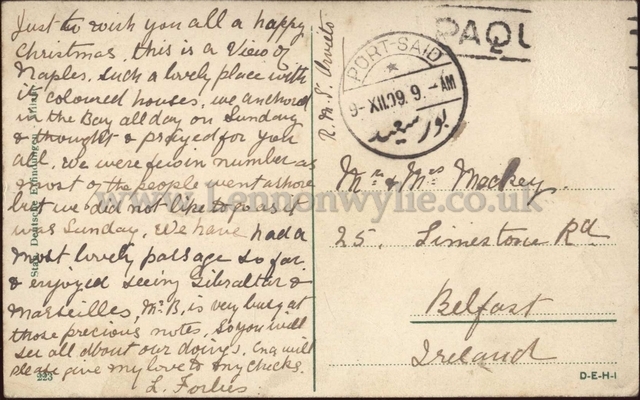 Just to wish you all a happy
Christmas, this is a View of
Naples, such a lovely place with
it coloured houses, we anchored
in the Bay all day on Sunday
& thought & prayed for you
all. We were few in number as
most of the people went ashore
but we did not like to go as it
was Sunday. We have had a
most lovely passage so far
& enjoyed seeing Gibraltar &
Marseilles, Mr B, is very busy at
those precious notes, so you will
see all about our doings.
will
please give my love to my chicks.
L. Forbes
223
R.M.S. Orvieto
PORT-SAID
9-XII.09. 9.-AM
بور سعيد
PAQU
Mr & Mrs Mackey.
25. Limestone Rd
Belfast
Ireland
D-E-H-I
www.Lennonwylie.co.uk